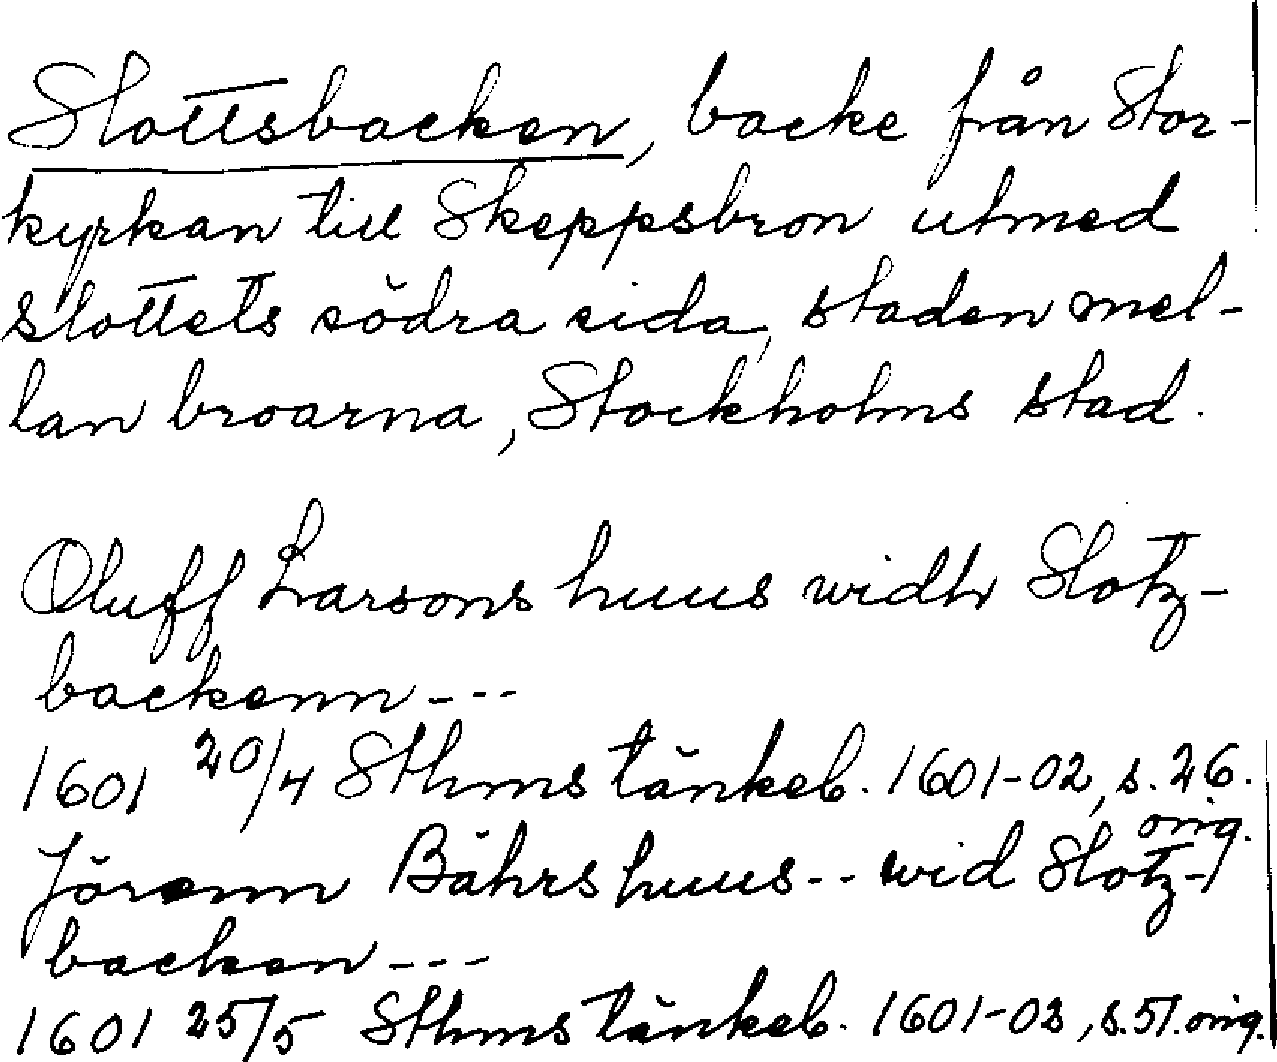 Slottsbacken, backe från Stor-
kyrkan till Skeppsbron utmed
slottets södra sida, staden mel-
lan broarna, Stockholms stad.
Oluff Larsons huus widh Slotz-
backenn---
1601 20/4 Sthms tänkeb. 1601-02, s. 26.
orig.
Jörenn Bährs huus-- wid Slotz-
backen---
1601 25/5 Sthms tänkeb. 1601-03, s. 51. orig.